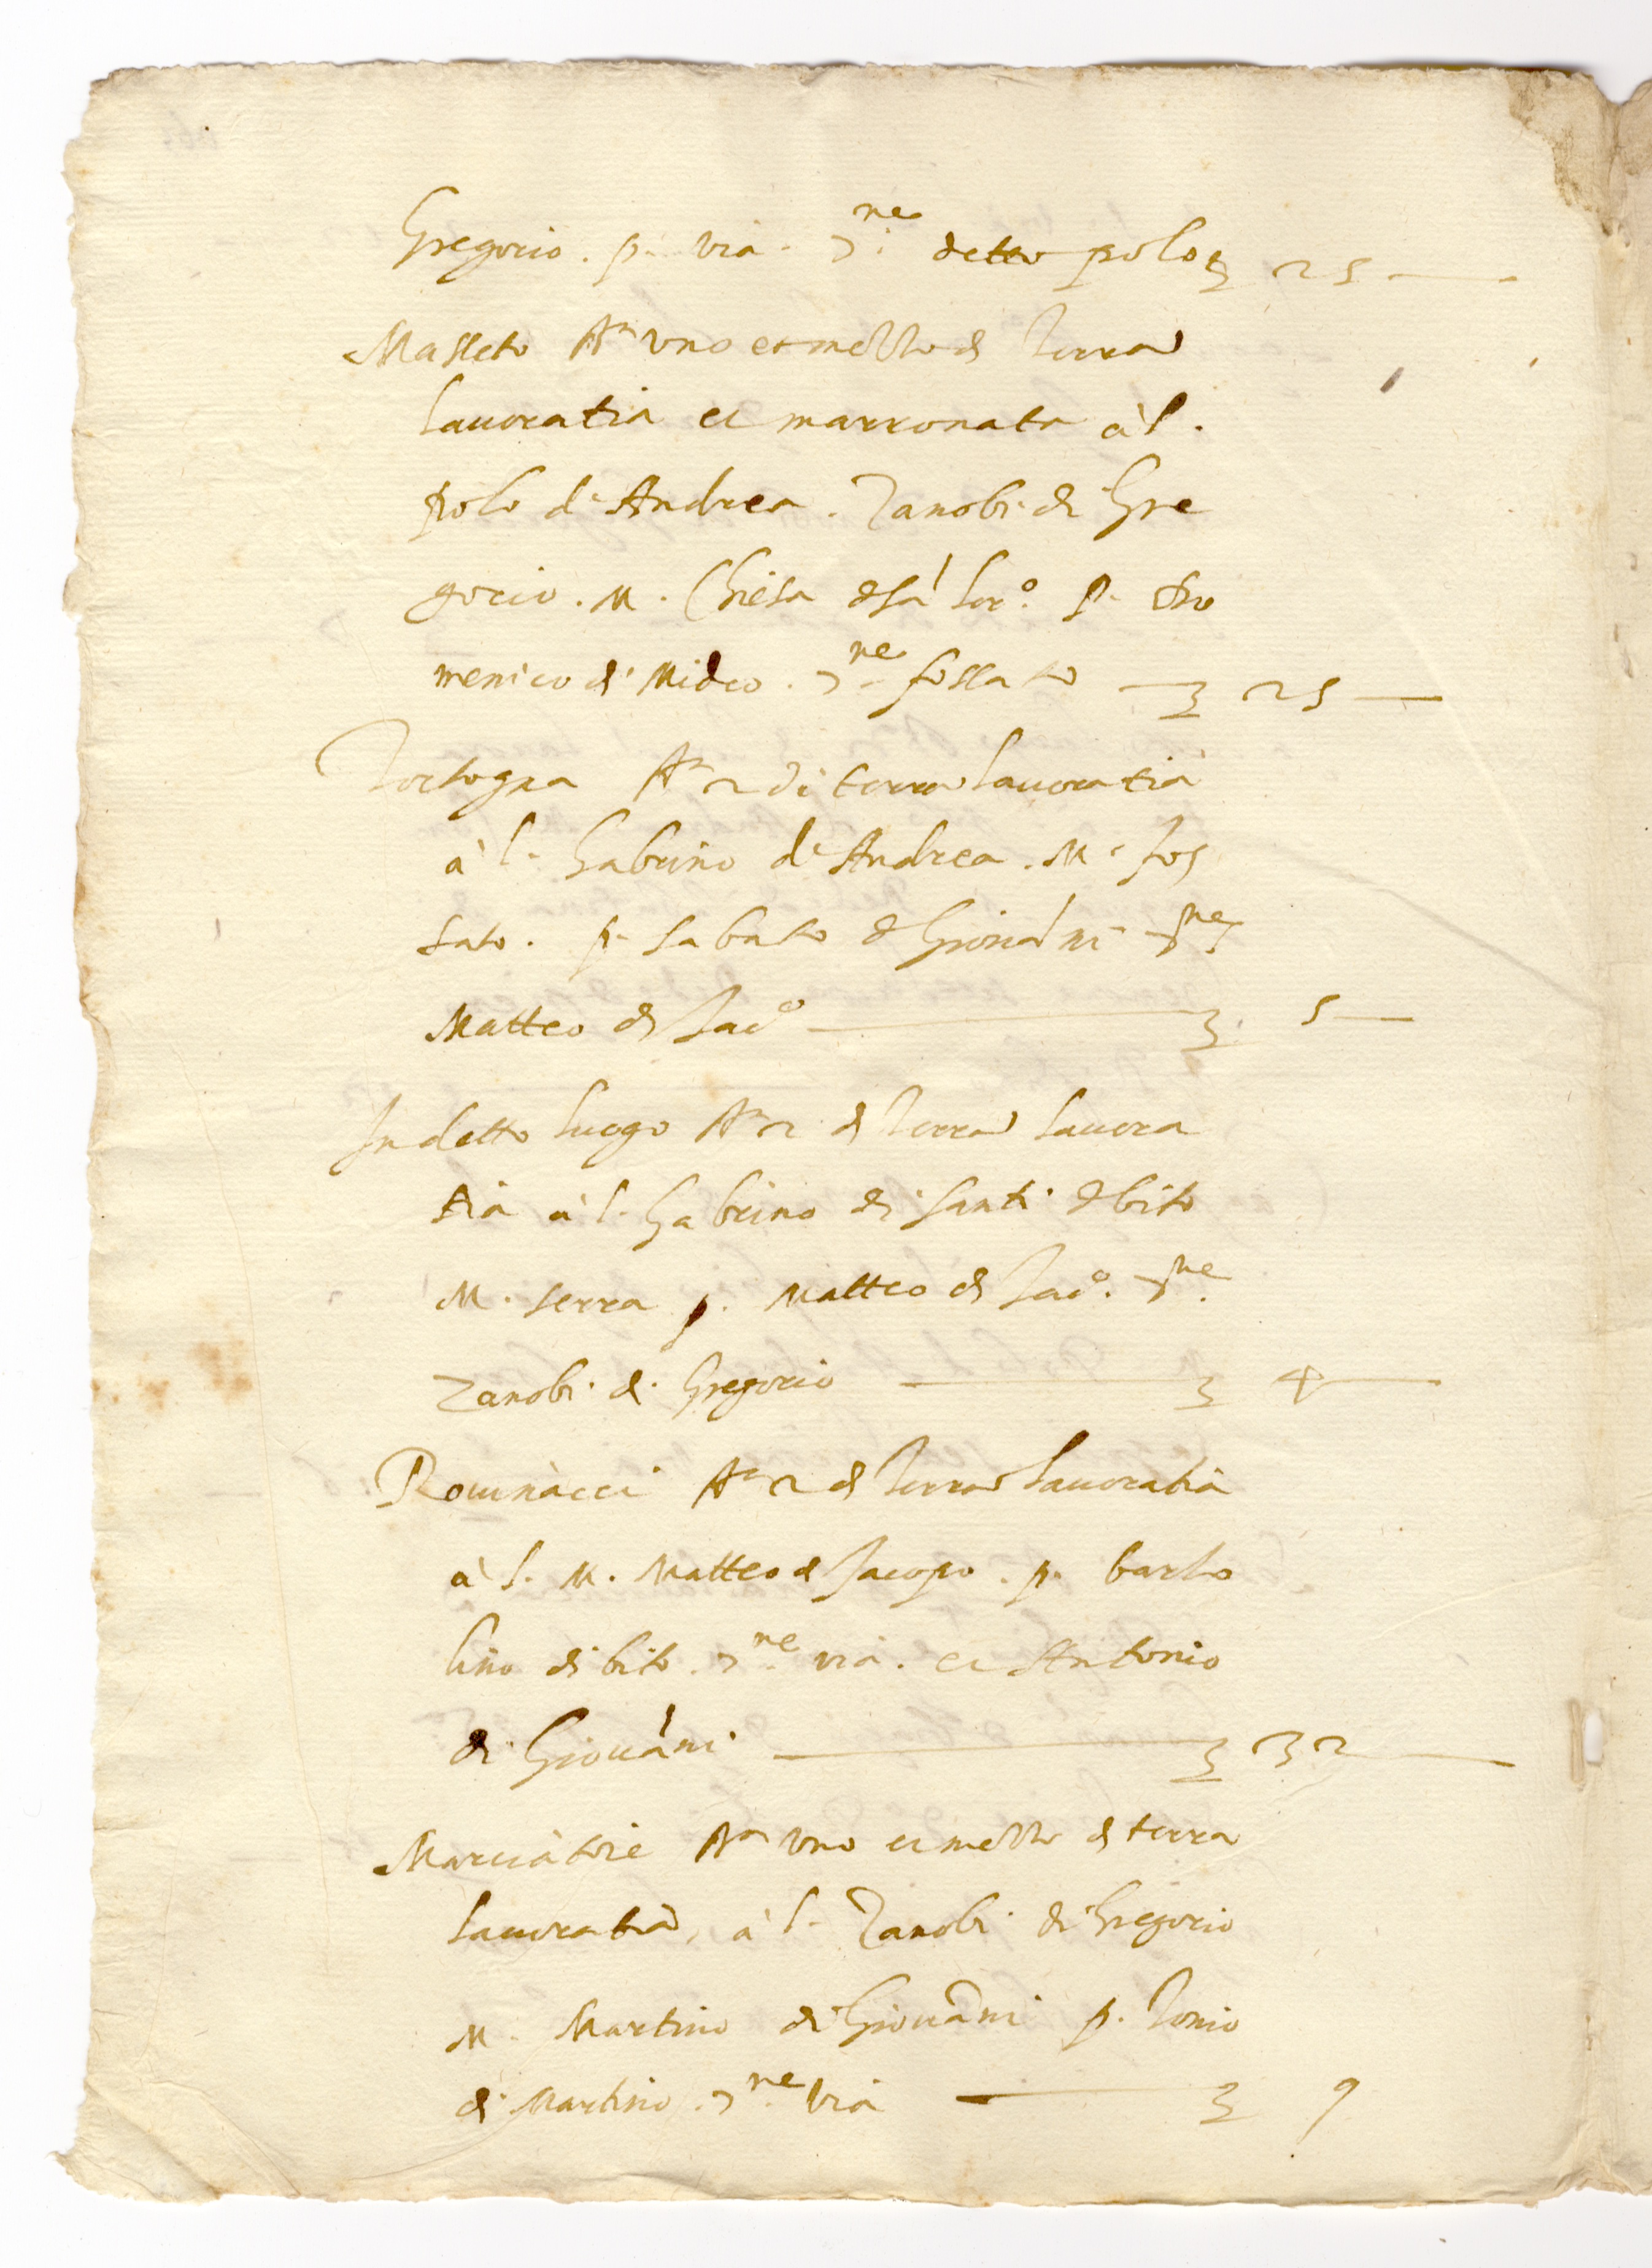 Gregorio . p. via . 7.ne detto polo 25
Masseto A.n uno et mezzo di terra
lauoratia et marronata à l.
polo d'Andrea . Zanobi di Gre
gorio . M. Chiesa di Lor.o p. Do
menico di Meo . 7.ne fossato 25
A.n 2 di terra lauoratia
à l. Gabrino d'Andrea . M. fos
sato . p. Sabato di Giouāni 7.ne
Matteo di Iac.o 5
In detto luogo A.n 2 di terra lauora
tia à l. Gabrino di Santi di bito
M. serra p. Matteo di Iac.o 7.ne
Zanobi di Gregorio 4
Rouinacci A.n 2 di terra lauoratia
à l. M. Matteo di Jacopo . p. barto
lino di bito . 7.ne via . et Antonio
di Giouāni 32
A.n uno et mezzo di terra
lauoratia, à l. Zanobi di Gregorio
M. Martino di Giouāni p. Tonio
di Martino . 7.ne via 9